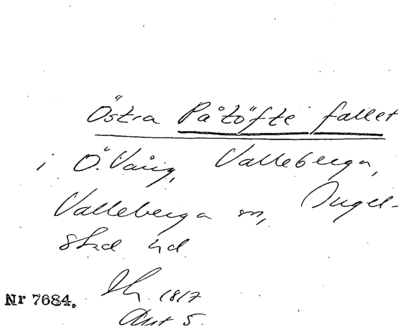 Östra Påtöfte fallet
i Ö. Vång, Valleberga,
Valleberga sn, Ingel-
stad hd.
Nr 7684. 1817
Akt 5.